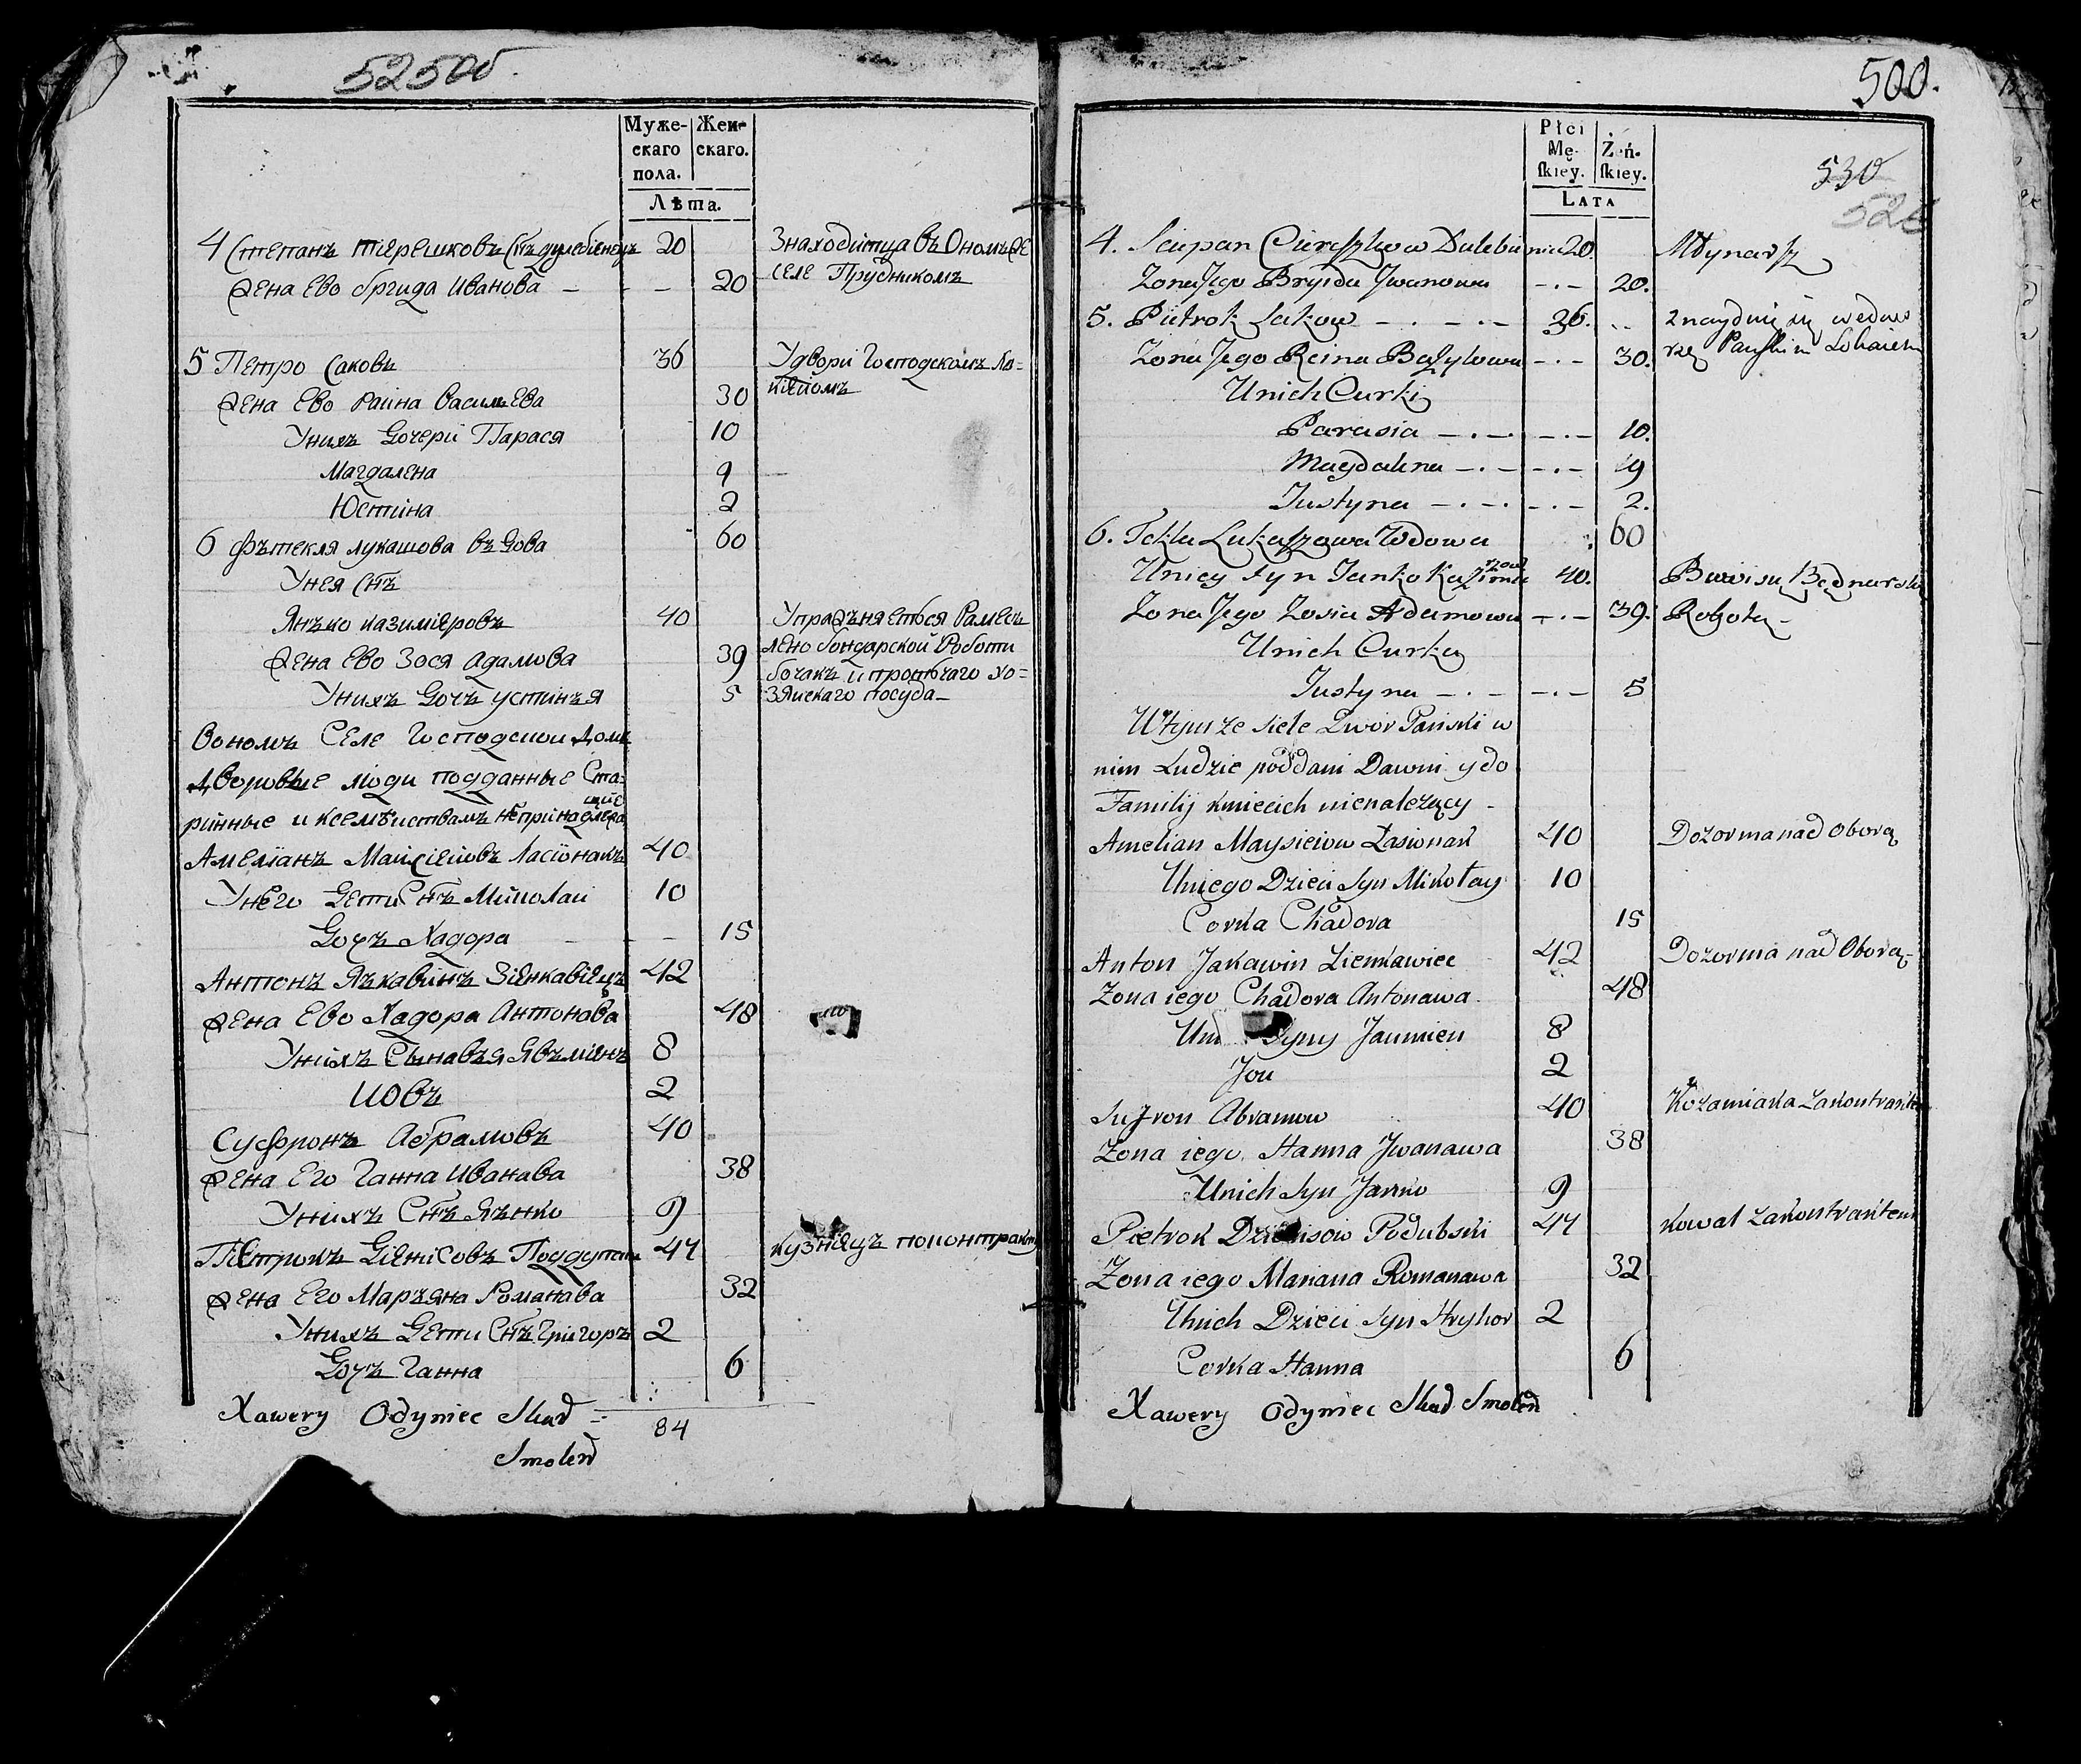 525об.
Муже-скаго пола. Жен-скаго.
Лѣта.
4 Степанъ Терешковъ Снъ дулебѣнецъ 20 Знаходитца въ Ономъ же
Жена Ево бргида Иванова — — — 20 селе Прудникомъ
5 Петро Саковъ 36 Удвори Господскомъ Ло=
Жена Ево Раина Васильева 30 каіомъ
Унихъ Дочери Парася 10
Магдалена 9
Юстина 2
6 Фѣтекля лукашова въдова 60
Унея Снъ
Янъко казиміяровъ 40 Упражъняетъся Рамес
Жена Ево Зося Адамова 39 лено бондарской Роботи
Унихъ Дочъ устинъя 5 бочакъ и протчаго хо=
зяискаго посуда —
Вономъ Селе Господской Домъ
Дворовые люди подданные Ста=
ринные и ксемѣиствамъ непринадлежащие
Амеліанъ Майсіеіовъ Ласіонакъ 40
Унего Дети Снъ Миколаи 10
Дочъ Хадора — — 15
Антонъ Якъкавинъ Зіянкавіецъ 42
Жена Ево Хадора Антонава 48
Унихъ Сынавъя Явъмиянъ 8
Иовъ 2
Суфронъ Абрамовъ 40
Жена Его Ганна Иванава 38
Унихъ Снъ Янъко 9
Петрокъ Діянисовъ 47 кузніяцъ поконтракту
Жена Его Маръяна Романава 32
Унихъ Дети Снъ Григоръ 2
Дочъ Ганна 6
Xawery Odyniec Skad
Smolen
84
500.
Płci Mę-skiey. Żeń-skiey.
LATA
530
4. Sciepan Cieraszkow Dulebieniec 20. Młynarz
Zona Jego Bryida Jwanowa — . — 20.
5. Pietrok Sakow — . — . — 36. znayduie się wedwo
Zona Jego Reina Bazylowa — . — 30. rze Pańskim Lokaiem
Unich Curki
Parasia — . — — . — 10.
Magdalena — . — — . — 9
Justyna — . — — . — 2.
6. Tekla Lukaszowa Wdowa 60
Unicy Syn Janko Kazimierzow 40. Bawi się Bednarską
Zona Jego Zosia Adamowa — . — 39. Robotą —
Unich Curka
Justyna — . — — . — 5
Wtymże siele Dwór Pański w
nim Ludzie poddani Dawni y do
Familij kmiecich nienależący —
Amelian Maysieiow Łasionak 40 Dozor ma nad oborą
Uniego Dzieci Syn Mikołay 10
Corka Chadora 15
Anton Jakawin Zienkawiec 42 Dozor ma nad Oborą —
Zona iego Chadora Antonawa 48
Syny Jaumien 8
Jou 2
Sufron Abramow 40 Kożamiaka zakontraktem
Zona iego Hanna Jwanawa 38
Unich Syn Janko 9
Pietrok Dzienisow Podubski 47 Kowal zakontraktem
Zona iego Mariana Romanawa 32
Unich Dzieci Syn Hryhor 2
Corka Hanna 6
Xawery Odyniec Skad Smolen